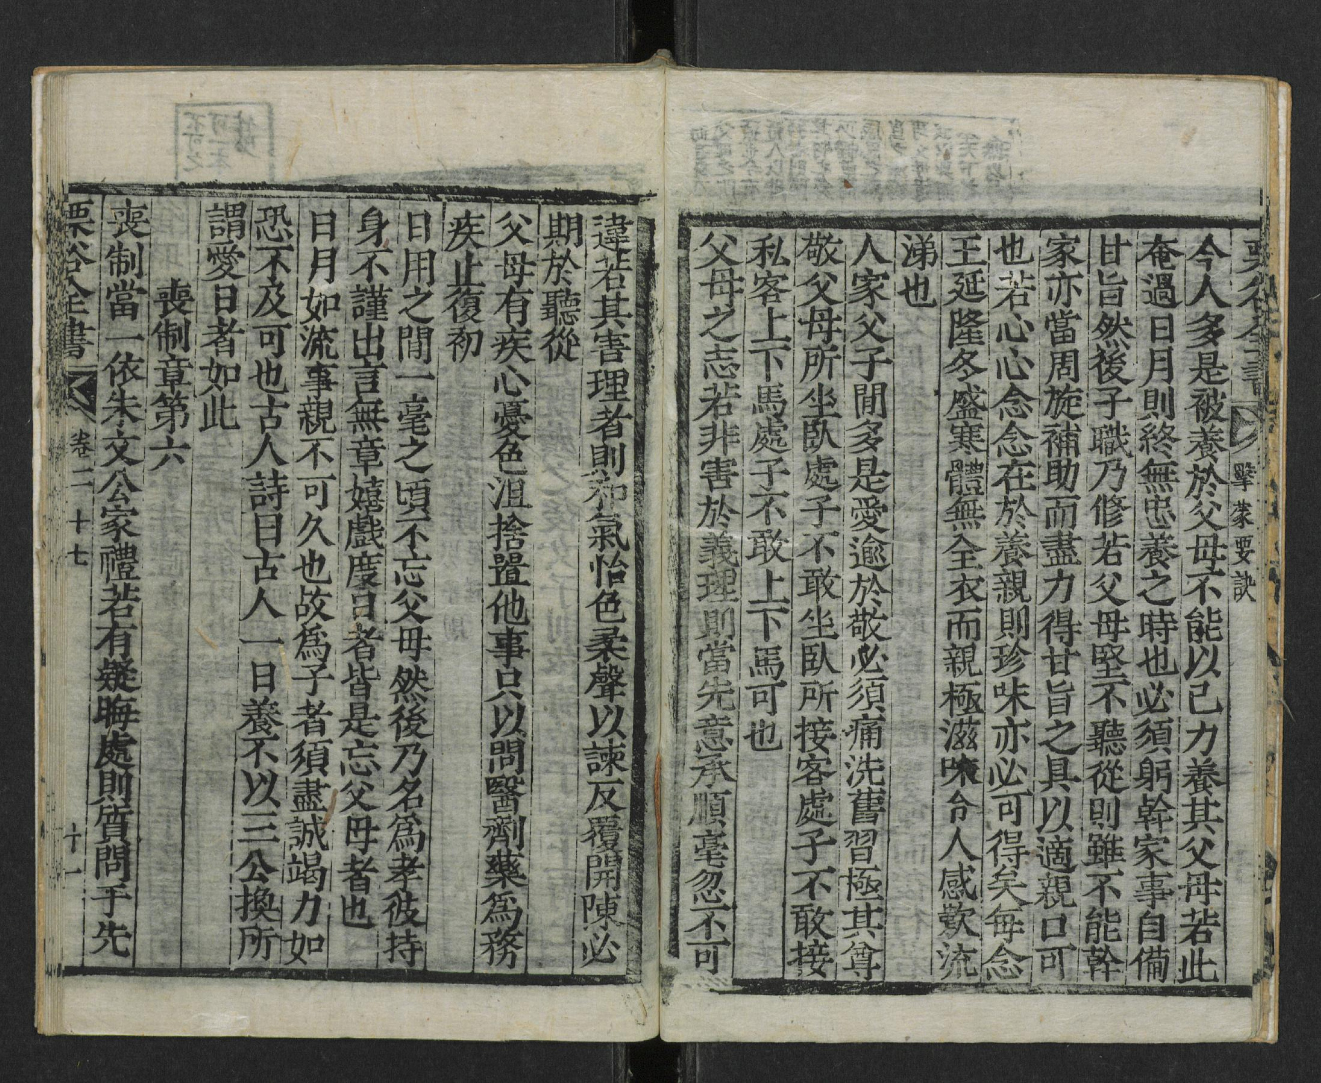 栗谷全書 擊蒙要訣
今人多是被養於父母不能以己力養其父母若此
奄過日月則終無忠養之時也必須躬幹家事自備
甘旨然後子職乃修若父母堅不聽從則雖不能幹
家亦當周旋補助而盡力得甘旨之具以適親口可
也若心心念念在於養親則珍味亦必可得矣每念
王延隆冬盛寒體無全衣而親極滋味令人感歎流
涕也
人家父子間多是愛逾於敬必須痛洗舊習極其尊
敬父母所坐臥處子不敢坐臥所接客處子不敢接
私客上下馬處子不敢上下馬可也
父母之志若非害於義理則當先意承順毫忽不可
違若其害理者則和氣怡色柔聲以諫反覆開陳必
期於聽從
父母有疾心憂色沮捨置他事只以問醫劑藥爲務
疾止復初
日用之間一毫之頃不忘父母然後乃名爲孝彼持
身不謹出言無章嬉戲度日者皆是忘父母者也
日月如流事親不可久也故爲子者須盡誠竭力如
恐不及可也古人詩曰古人一日養不以三公換所
謂愛日者如此
喪制章第六
喪制當一依朱文公家禮若有疑晦處則質問于先
栗谷全書 卷二十七 十一